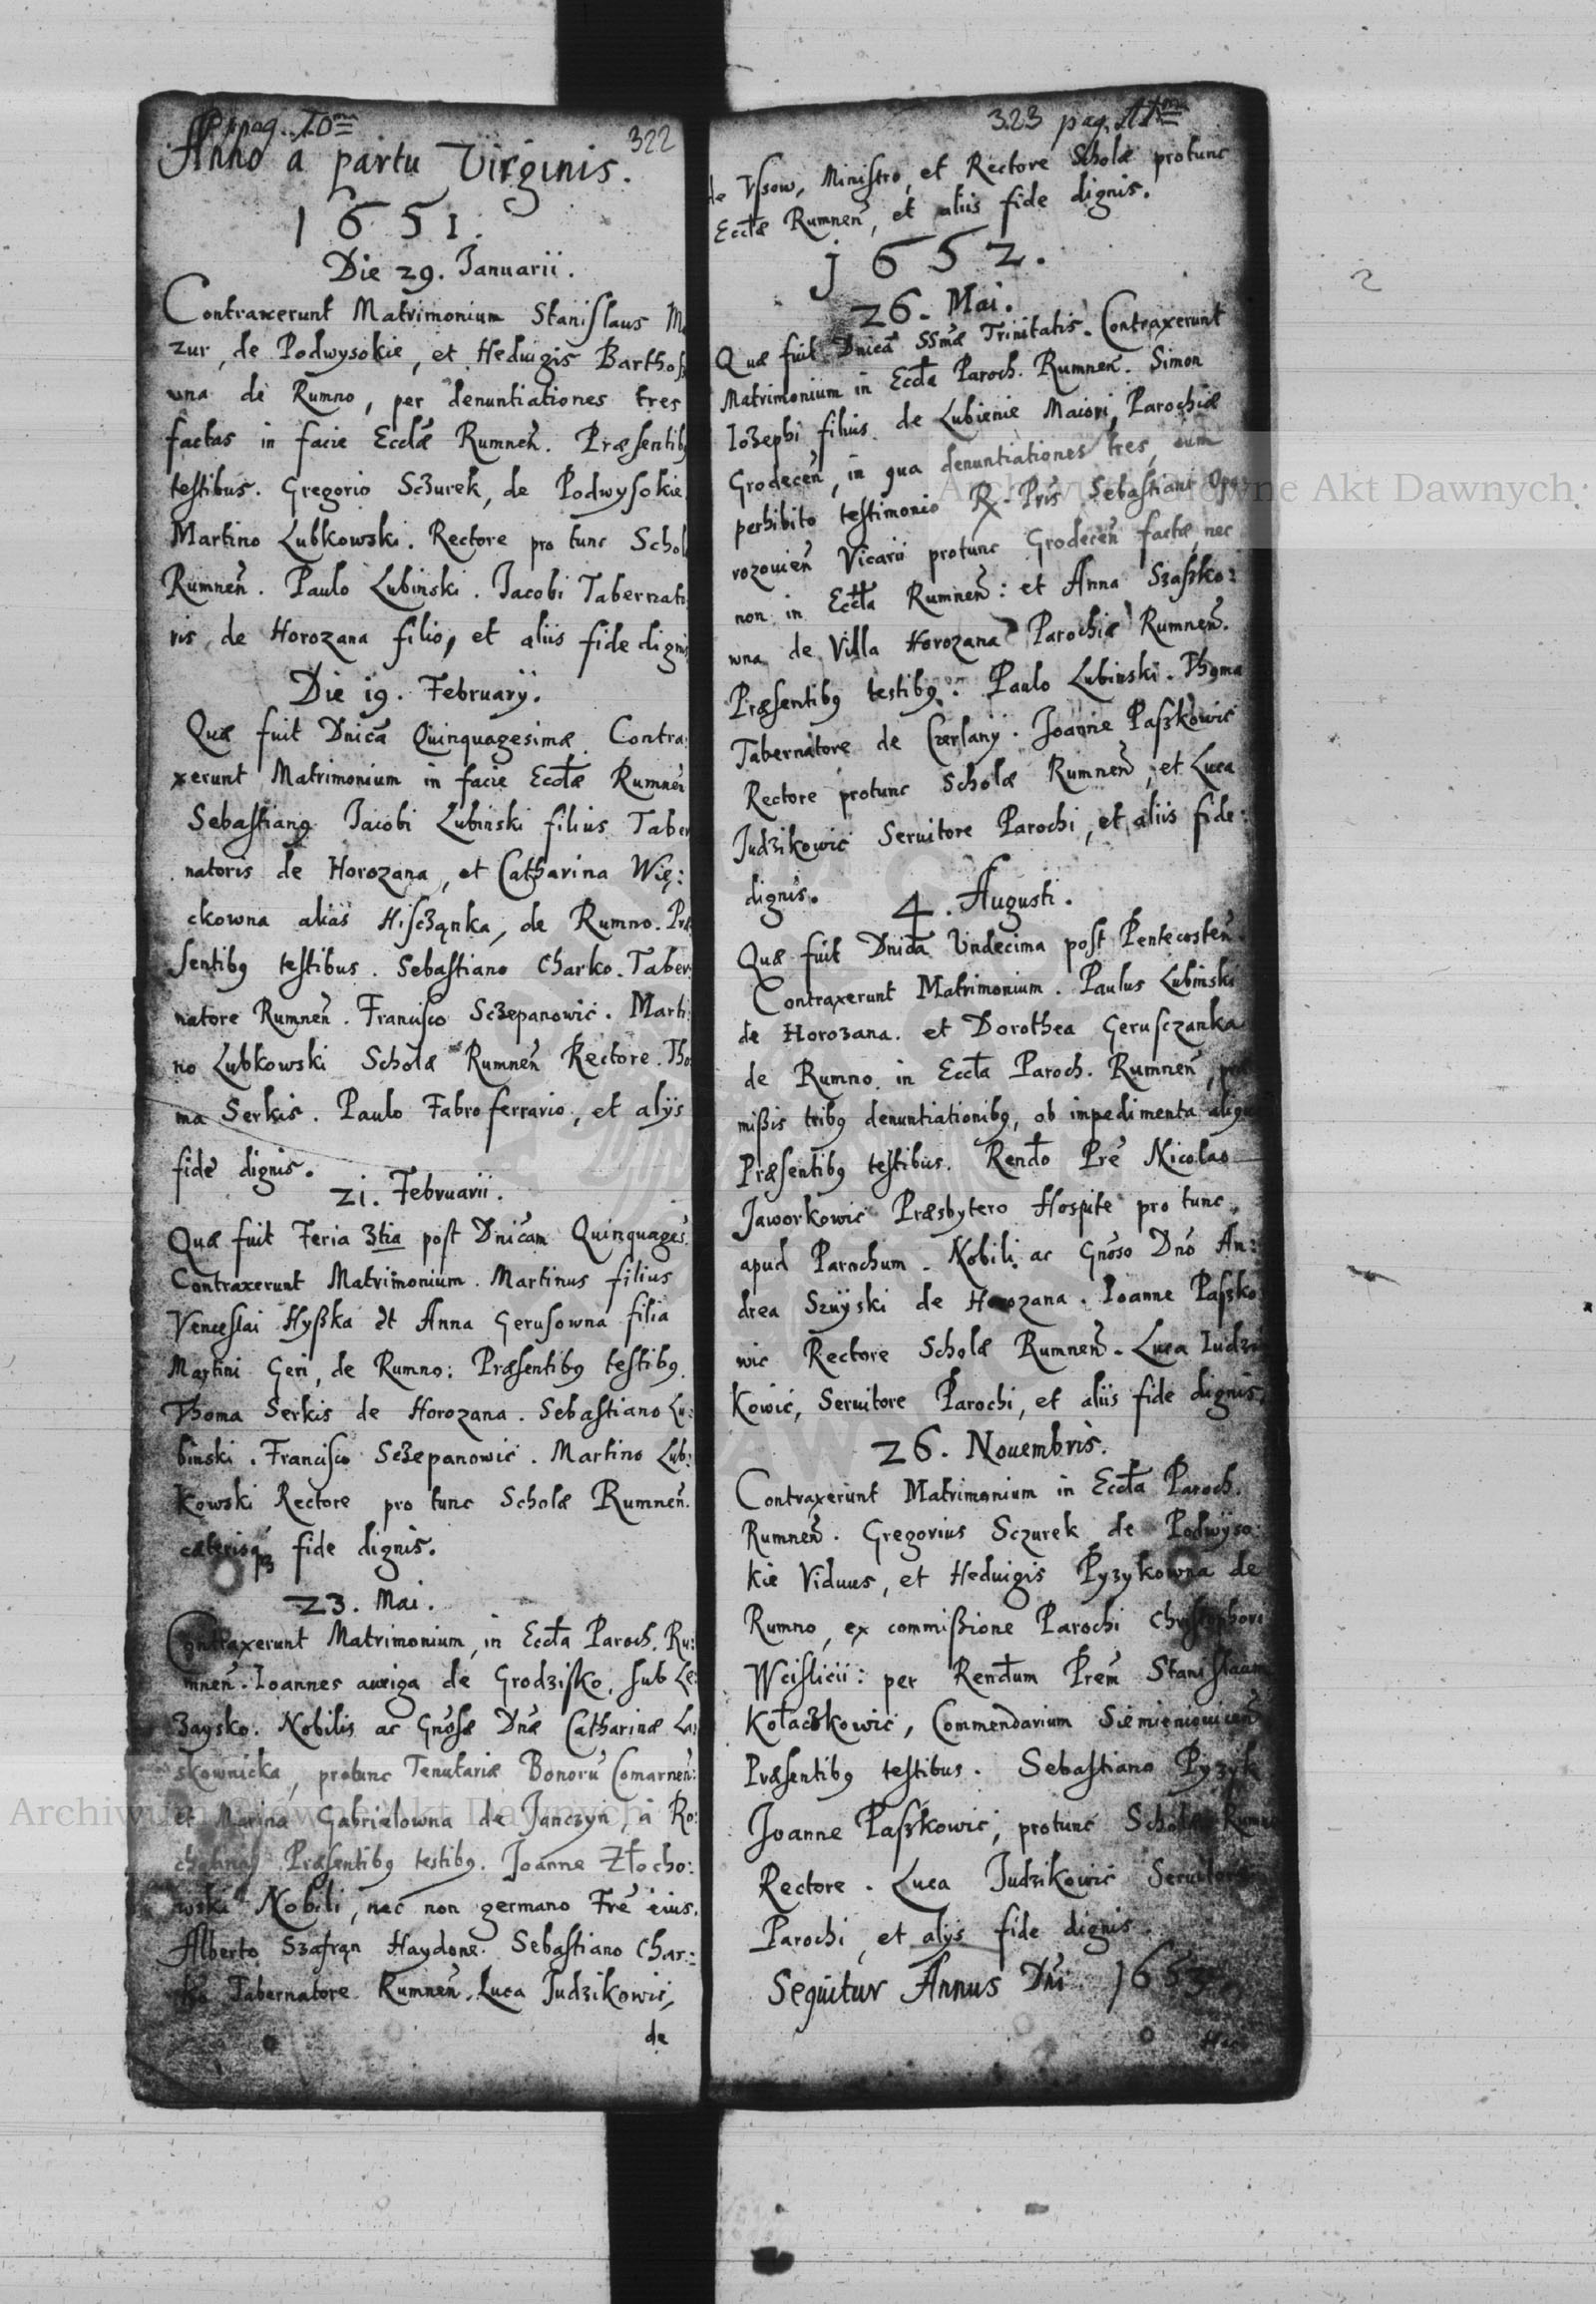 pag. 10ma
322
Anno a partu Virginis.
1651.
Die 29. Ianuarii.
Contraxerunt Matrimonium Stanislaus Ma
zur, de Podwysokie, et Heduigis Barthos
wna de Rumno, per denuntiationes tres
factas in facie Ecclæ Rumneñ. Præsentibq
testibus. Gregorio Sczurek, de Podwysokie
Martino Lubkowski. Rectore pro tunc Schol
Rumneñ. Paulo Lubinski. Iacobi Tabernato
ris de Horozana filio, et aliis fide dignis
Die 19. February.
Quæ fuit Dnica Quinquagesimæ. Contra:
xerunt Matrimonium in facie Ecclæ Rumneñ
Sebastianq Iacobi Lubinski filius Taber
natoris de Horozana, et Catharina Wię:
ckowna alias Hiscząnka, de Rumno. Præ
sentibq testibus. Sebastiano Charko. Taber:
natore Rumneñ. Francisco Sczepanowic. Marti:
no Lubkowski Scholæ Rumneñ Rectore. Tho
ma Serkis. Paulo Fabro ferrario, et alÿs
fide dignis.
21. Februarii.
Quæ fuit Feria 3tia post Dnicam Quinquages.
Contraxerunt Matrimonium. Martinus filius
Venceslai Hyßka et Anna Gerusowna filia
Martini Geri, de Rumno: Præsentibq testibq.
Thoma Serkis de Horozana. Sebastiano Lu:
binski. Francisco Sczepanowic. Martino Lub:
kowski Rectore pro tunc Scholæ Rumneñ.
cæterisqz fide dignis.
23. Mai.
Contraxerunt Matrimonium, in Eccla Paroch. Ru:
mneñ. Ioannes auriga de Grodzisko, sub Le:
zaysko. Nobilis ac Gnosæ Dnæ Catharinæ La:
skownicka, protunc Tenutariæ Bonorũ Comarneñ:
et Marina Gabrielowna de Janczyn, à Ro:
Præsentibq testibq. Joanne Złocho:
wski Nobili, nec non germano Frẽ eius.
Alberto Szafrąn Haydone. Sebastiano Char:
ko Tabernatore Rumneñ. Luca Judzikowic,
de
323 pag. 11ma
de Vssow, Ministro, et Rectore Scholæ protunc
Ecclæ Rumneñ, et aliis fide dignis.
1652.
26. Mai.
Quæ fuit Dnica SSmæ Trinitatis. Contraxerunt
Matrimonium in Eccla Paroch. Rumneñ. Simon
Iozephi filius de Lubienie Maiori, Parochiæ
Grodeceñ, in qua denuntiationes tres, cum
perhibito testimonio R. Pris Sebastiani Opo
rozovieñ Vicarii protunc Grodeceñ factæ, nec
non in Eccla Rumneñ: et Anna Szaszko:
wna de Villa Horozana Parochiæ Rumneñ.
Præsentibq testibq. Paulo Lubinski. Thoma
Tabernatore de Czerlany. Joanne Paszkowic
Rectore protunc Scholæ Rumneñ, et Luca
Judzikowic Seruitore Parochi, et aliis fide:
dignis.
4. Augusti.
Quæ fuit Dnica Vndecima post Pentecosteñ.
Contraxerunt Matrimonium. Paulus Lubinski
de Horozana. et Dorothea Gerusczanka
de Rumno in Eccla Paroch. Rumneñ,
mißis tribq denuntiationibq, ob impedimenta aliqu
Præsentibq testibus. Rendo Prẽ Nicolao
Jaworkowic Præsbytero Hospite pro tunc,
apud Parochum. Nobili ac Gnoso Dno An:
drea Szuyski de Horozana. Ioanne Paszko
wic Rectore Scholæ Rumneñ. Luca Iudzi
kowic, Seruitore Parochi, et aliis fide dignis.
26. Nouembris.
Contraxerunt Matrimonium in Eccla Paroch.
Rumneñ. Gregorius Sczurek de Podwyso:
kie Viduus, et Heduigis Pyzykowna de
Rumno, ex commißione Parochi Christophori
Wcislicii: per Rendum Prem Stanislaum
Kołaczkowic, Commendarium
Præsentibq testibus. Sebastiano Pyzyk
Joanne Paszkowic, protunc Scholæ Rumn
Rectore. Luca Judzikowic Seruitore
Parochi, et alÿs fide dignis.
Sequitur Annus Dni 1653
Archiwum Główne Akt Dawnych
Archiwum Główne Akt Dawnych